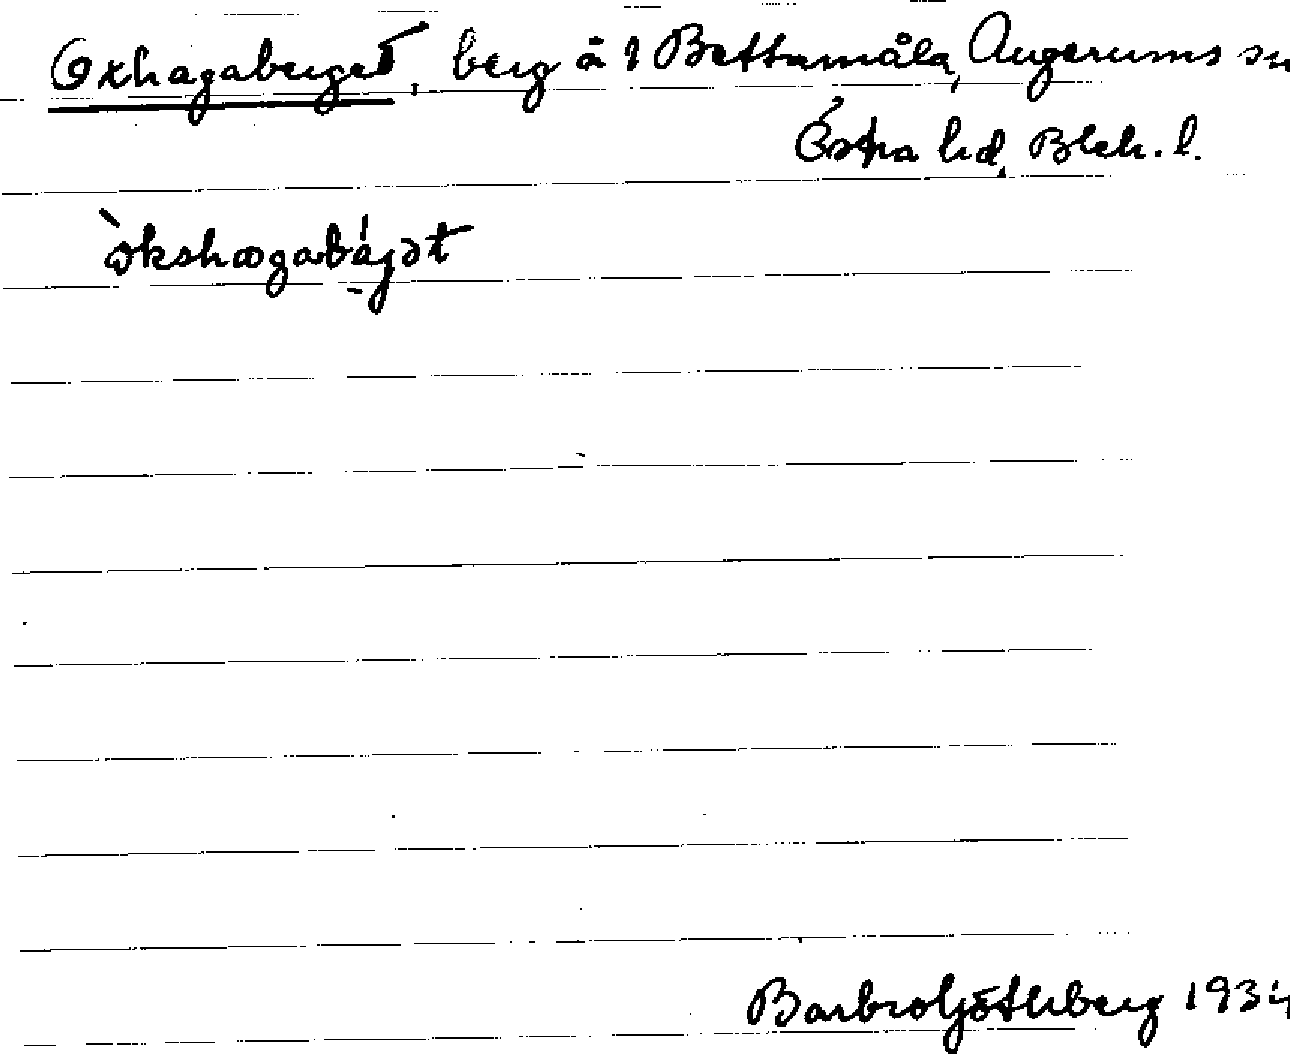 Oxhagaberget, berg å 1 Bettamåla, Augerums sn
Östra hd, Blek. l.
òkshagabájət
Barbro Göthberg 1934